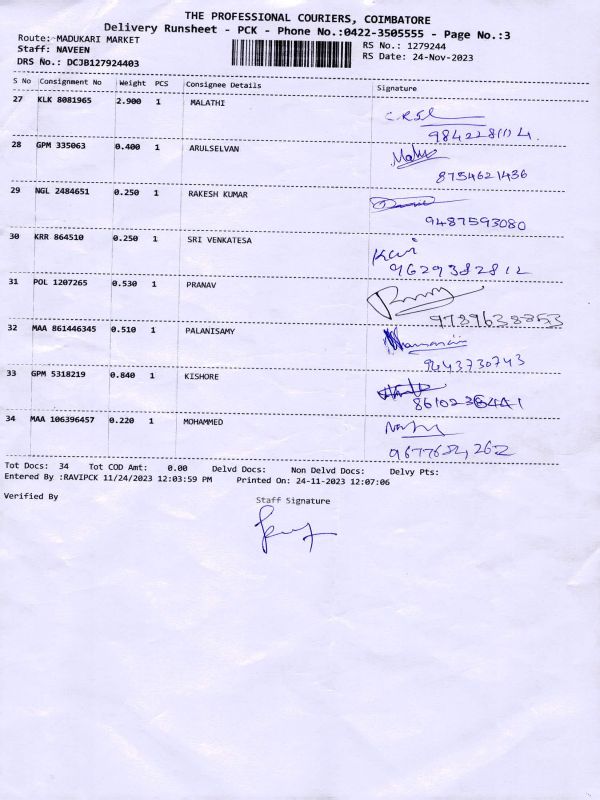 THE PROFESSIONAL COURIERS, COIMBATORE
Delivery Runsheet - PCK - Phone No.:0422-3505555 - Page No.:3
Route: MADUKARI MARKET
RS No.: 1279244
Staff: NAVEEN
RS Date: 24-Nov-2023
DRS No.: DCJB127924403
S No Consignment No Weight PCS Consignee Details Signature
27 KLK 8081965 2.900 1 MALATHI
9842281104
28 GPM 335063 0.400 1 ARULSELVAN
8754621436
29 NGL 2484651 0.250 1 RAKESH KUMAR
9487593080
30 KRR 864510 0.250 1 SRI VENKATESA
9629382812
31 POL 1207265 0.530 1 PRANAV
9789638853
32 MAA 861446345 0.510 1 PALANISAMY
9643730743
33 GPM 5318219 0.840 1 KISHORE
34 MAA 106396457 0.220 1 MOHAMMED
Tot Docs: 34 Tot COD Amt: 0.00 Delvd Docs: Non Delvd Docs: Delvy Pts:
Entered By :RAVIPCK 11/24/2023 12:03:59 PM Printed On: 24-11-2023 12:07:06
Verified By
Staff Signature